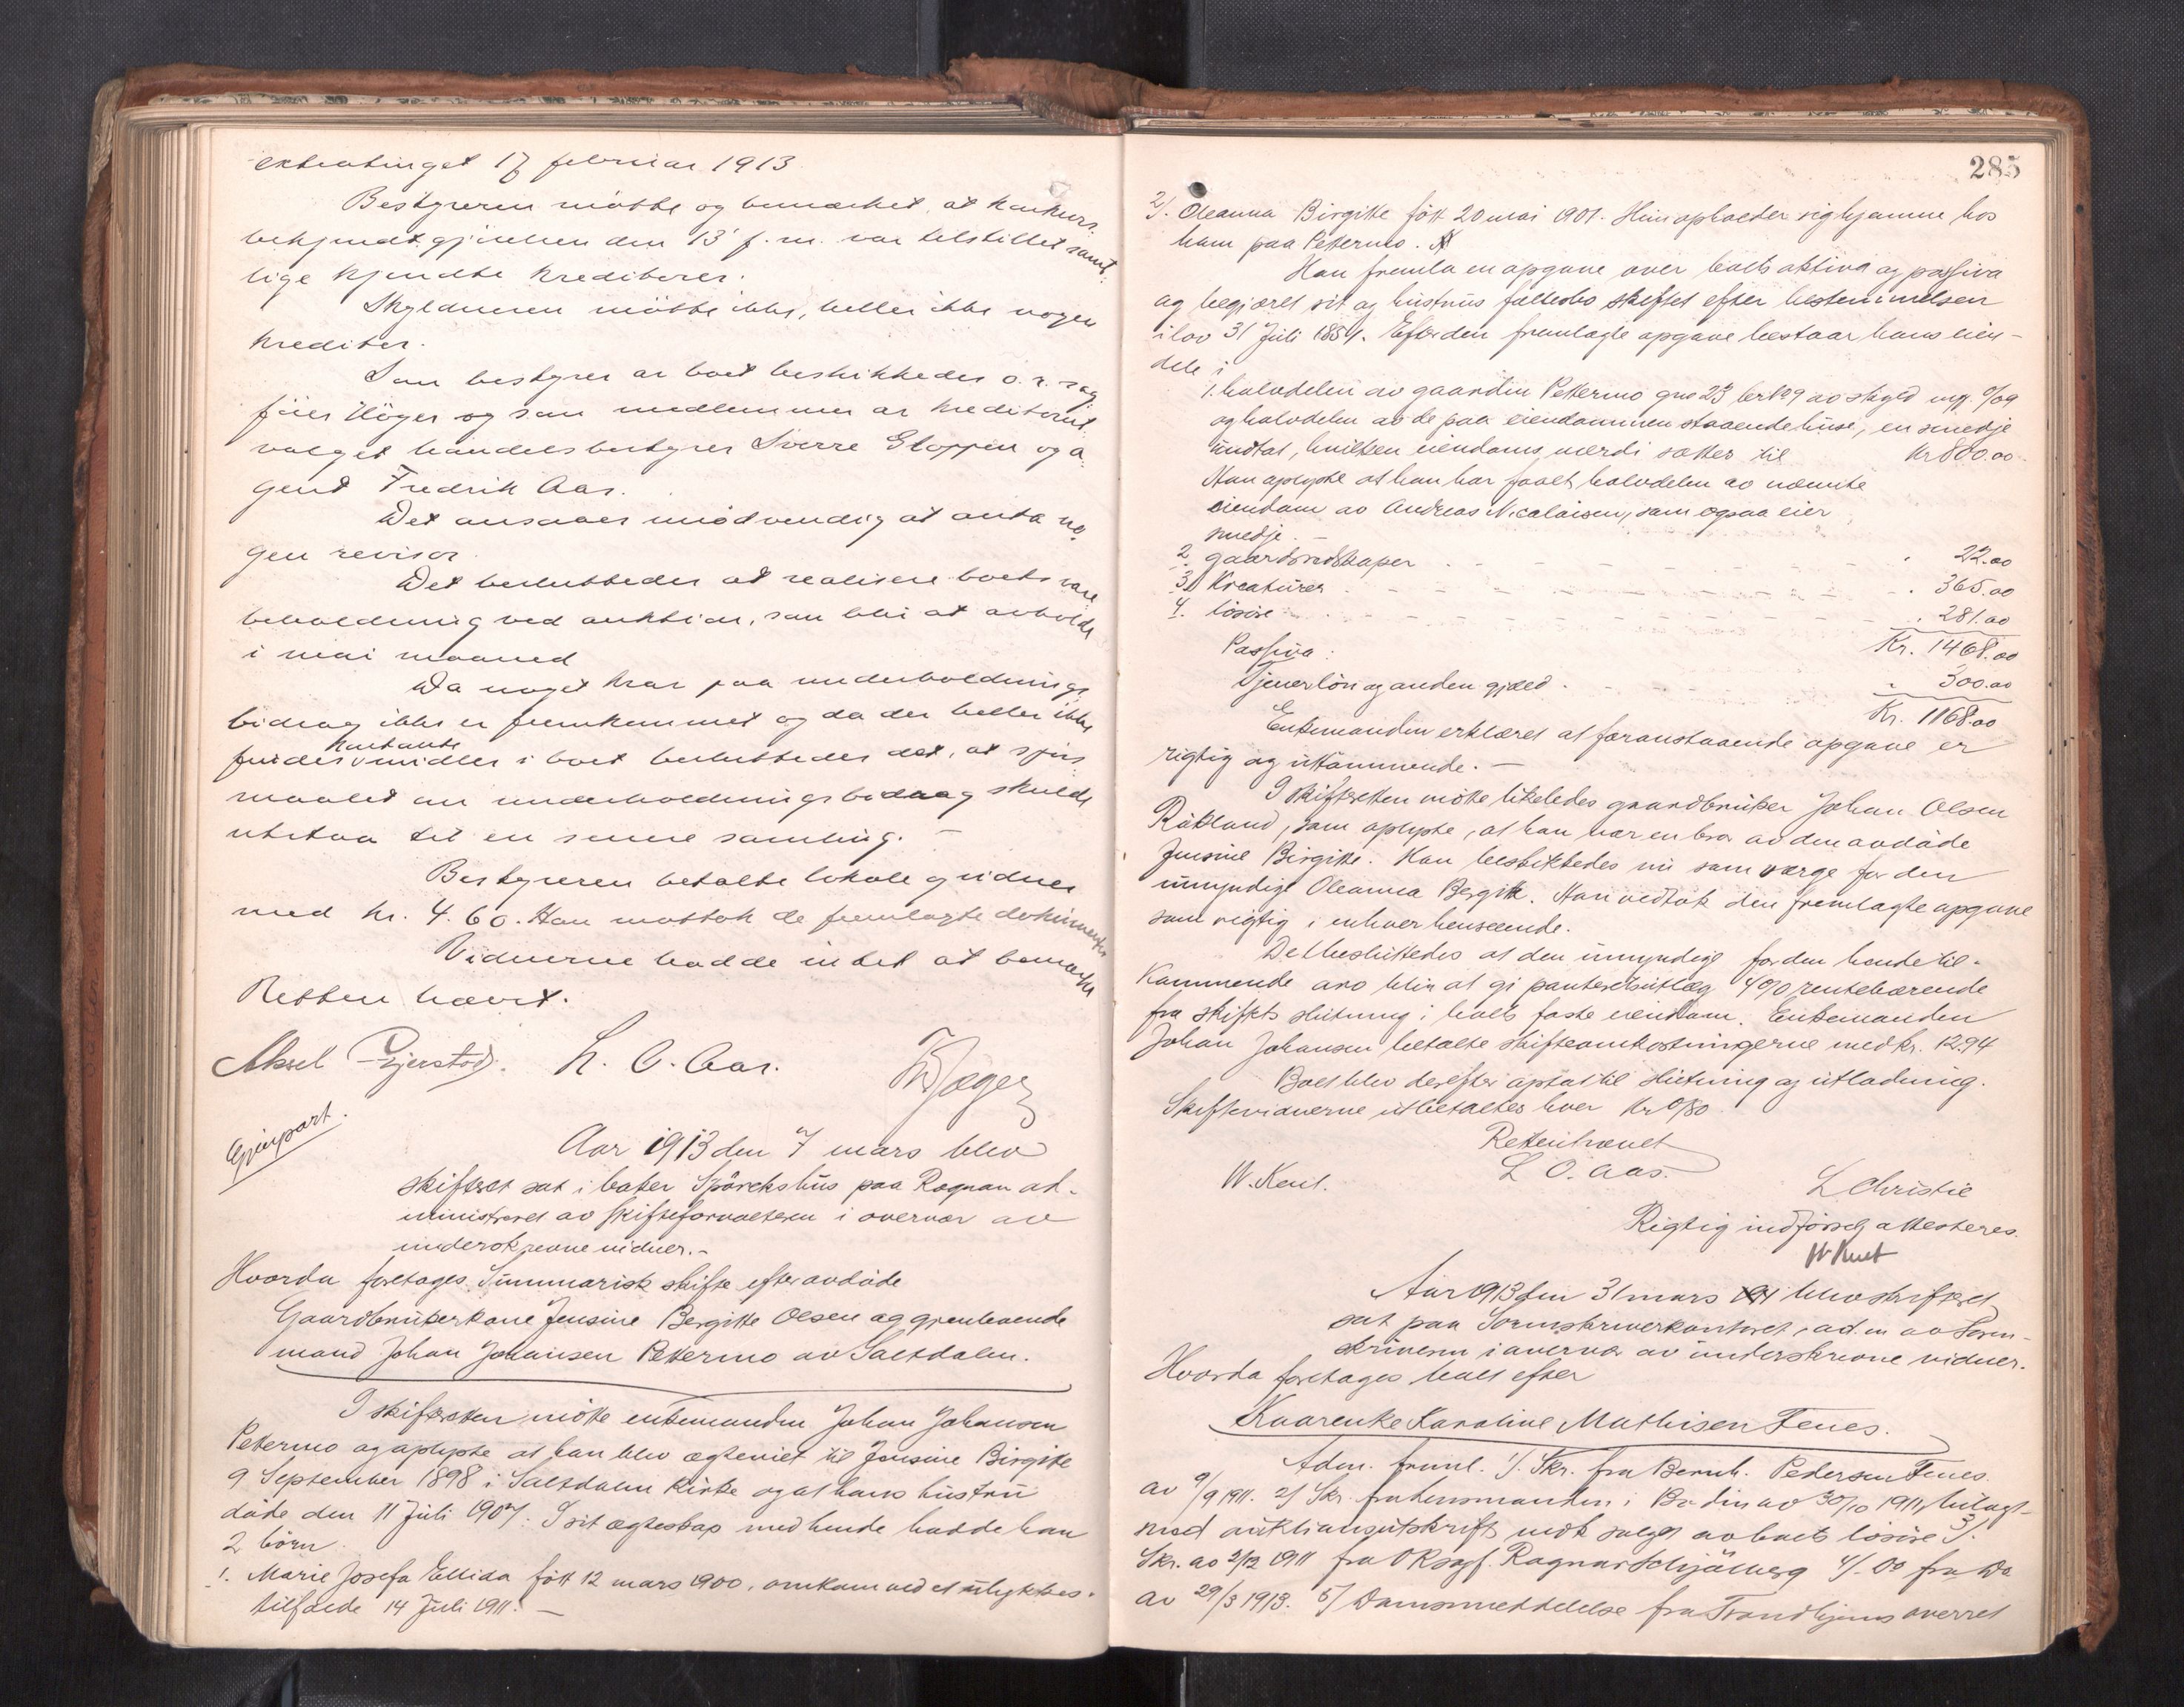 extratinget 17 februar 1913.
Bestyreren mötte og bemerket, at konkurs-
bekjendtgjörelsen den 13' f. m. var tilstillet samt-
lige kjendte kreditorer.
Skyldneren mötte ikke, heller ikke nogen
kreditor.
Som bestyrer av boet beskikkedes o. r. sag
förer Höger og som medlemmer av kreditorut-
valget handelsbestyrer Sverre Gloppen og a
gent Fredrik Aas.
Det ansaaes unödvendig at anta no
gen revisor.
Det besluttedes at realisere boets vare
beholdning ved auktion, som blir at avholde
i mai maaned
Da noget krav paa underholdnings
bidrag ikke er fremkommet og da der heller ikke
kontante
findes midler i boet besluttedes det, at spörs
maalet om underholdningsbidrag skulde
utstaa til en senere samling. —
Bestyreren betalte lokale og vidner
med kr. 4.60. Han mottok de fremlagte dokumenter
Vidnerne hadde intet at bemerke
Retten hævet.
Aksel Gjerstad. L. O. Aas.
Gjenpart.
Aar 1913 den 7 mars blev
skifteret sat i baker Spörcks hus paa Rognan ad-
ministreret av skifteforvalteren i overvær av
underskrevne vidner. -
Hvorda foretages Summarisk skifte efter avdöde
Gaardbrukerkone Jensine Bergitte Olsen og gjenlevende
mand Johan Johansen Pettermo av Saltdalen.
I skifteretten mötte enkemanden Johan Johansen
Pettermo og oplyste at han blev ægteviet til Jensine Birgitte
9 September 1898 i Saltdalen Kirke og at hans hustru
döde den 11 Juli 1907. I sit ægteskap med hende hadde han
2 börn.
1. Marie Josefa Ellida föt 12 mars 1900, omkom ved et ulykkes-
tilfælde 14 Juli 1911. —
285
2/. Oleanna Birgitte föt 20 mai 1901. Hun opholder sig hjemme hos
ham paa Pettermo.
Han fremla en opgave over boets aktiva og passiva
og begjæret sit og hustrus fællesbo skiftet efter bestemmelsen
i lov 31 Juli 1854. Efter den fremlagte opgave bestaar hans eien-
dele i
1. halvdelen av gaarden Pettermo gno 23 brno 9 av skyld
og halvdelen av de paa eiendommen staaende huse, en smedje
undtat, hvilken eiendoms værdi sættes til Kr 800.00
Han oplyste at han har faaet halvdelen av nævnte
eiendom av Andreas Nicolaisen, som ogsaa eier
smedje. —
2. gaardsredskaper . 22.00
3. Kreaturer . 365.00
4. lösöre . 281.00
Passiva: Kr. 1468.00
Tjenerlön og anden gjæld . " 300.00
Kr. 1168.00
Enkemanden erklæret at foranstaaende opgave er
rigtig og uttömmende. —
I skifteretten mötte likeledes gaardbruker Johan Olsen
Rökland, som oplyste, at han var en bror av den avdöde
Jensine Birgitte. Han beskikkedes nu som værge for den
umyndige Oleanna Bergitte. Han vedtok den fremlagte opgave
som rigtig i enhver henseende.
Det besluttedes at den umyndige for den hende til-
kommende arv blir at gi panteretsutlæg 4 0/0 rentebærende
fra skiftets slutning i boets faste eiendom. Enkemanden
Johan Johansen betalte skifteomkostningerne med kr. 12.94
Boet blev derefter optat til slutning og utlodning.
Skiftevidnerne utbetaltes hver kr 0,80.
Retten hævet
W. Knut. L. O. Aas. L Christie
Rigtig indförsel attesteres.
W. Knut
Aar 1913 den 31 mars blev skifteret
sat paa Sorenskriverkontoret, adm av Soren-
skriveren i overvær av underskrevne vidner.
Hvorda foretages boet efter
Kaarenke Karoline Mathisen Fenes.
Adm. freml. 1/. Skr. fra Bernh. Pedersen Fenes.
av 9/9 1911. 2/ Skr. fra lensmanden i Bodin av 30/10 1911, bilagt
med auktionsutskrift vedk salget av boets lösöre 3/.
Skr. av 2/12 1911 fra ORsagf. Ragnar Schjölberg 4/. Do fra Do
av 29/3 1913. 5/ Domsmeddelelse fra Trondhjems overret